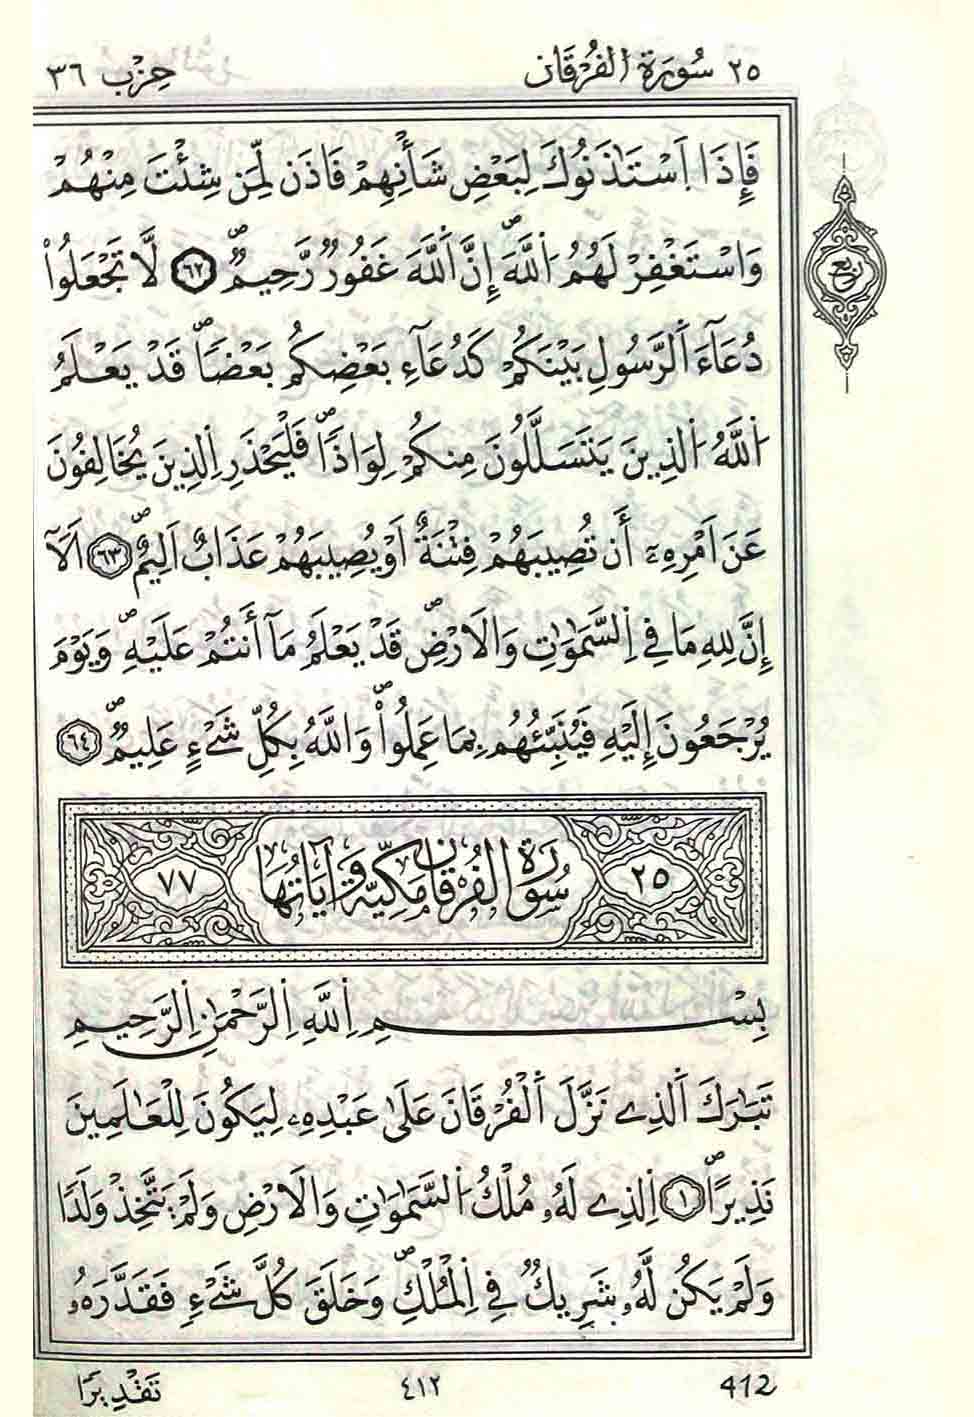 ٢٥ سُورَةُ الفُرْقَان
حِزْب ٣٦
فَإِذَا اَسْتَٰذَنُوكَ لِبَعْضِ شَأْنِهِمْ فَاذَن لِّمَن شِئْتَ مِنْهُمْ
ربع
وَاسْتَغْفِرْ لَهُمُ اللَّهَ إِنَّ اَللَّهَ غَفُورٌ رَّحِيمٌ ٦٢ لَّا تَجْعَلُواْ
دُعَآءَ اَلرَّسُولِ بَيْنَكُمْ كَدُعَآءِ بَعْضِكُم بَعْضاً قَدْ يَعْلَمُ
اُللَّهُ اُلذِينَ يَتَسَلَّلُونَ مِنكُمْ لِوَاذاً فَلْيَحْذَرِ اِلذِينَ يُخَالِفُونَ
عَنَ اَمْرِهِۦٓ أَن تُصِيبَهُمْ فِتْنَةٌ اَوْ يُصِيبَهُمْ عَذَابٌ اَلِيمٌ ٦٣ اَلَآ
إِنَّ لِلهِ مَا فِي اِلسَّمَٰوَٰتِ وَالَارْضِ قَدْ يَعْلَمُ مَآ أَنتُمْ عَلَيْهِ وَيَوْمَ
يُرْجَعُونَ إِلَيْهِ فَيُنَبِّئُهُم بِمَا عَمِلُواْ وَاللَّهُ بِكُلِّ شَےْءٍ عَلِيمٌ ٦٤
٢٥ سُورَةُ الفُرْقَانِ مَكِيَّة وَآيَاتُهَا ٧٧
بِسْمِ اِللَّهِ اِلرَّحْمَٰنِ اِلرَّحِيمِ
تَبَٰرَكَ اَلذِے نَزَّلَ اَلْفُرْقَانَ عَلَىٰ عَبْدِهِۦ لِيَكُونَ لِلْعَٰلَمِينَ
نَذِيراً ١ اِلذِے لَهُۥ مُلْكُ اُلسَّمَٰوَٰتِ وَالَارْضِ وَلَمْ يَتَّخِذْ وَلَداً
وَلَمْ يَكُن لَّهُۥ شَرِيكٌ فِي اِلْمُلْكِ وَخَلَقَ كُلَّ شَےْءٍ فَقَدَّرَهُۥ
412
٤١٢
تَقْدِيرًا